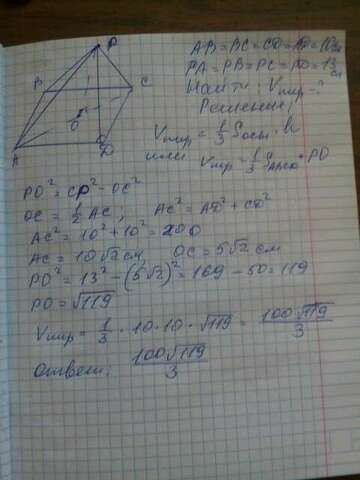 P
B
C
O
A
D
AB=BC=CD=AD=10см
PA=PB=PC=PD=13см
Найти: Vпир-?
Решение:
Vпир=1/3 Sосн·h
или
Vпир=1/3 SABCD·PO
PO²=CP²-OC²
OC=1/2 AC; AC²=AD²+CD²
AC²=10²+10²=200
AC=10√2см, OC=5√2см
PO²=13²-(5√2)²=169-50=119
PO=√119
Vпир=1/3·10·10·√119=100√119/3
Ответ: 100√119/3